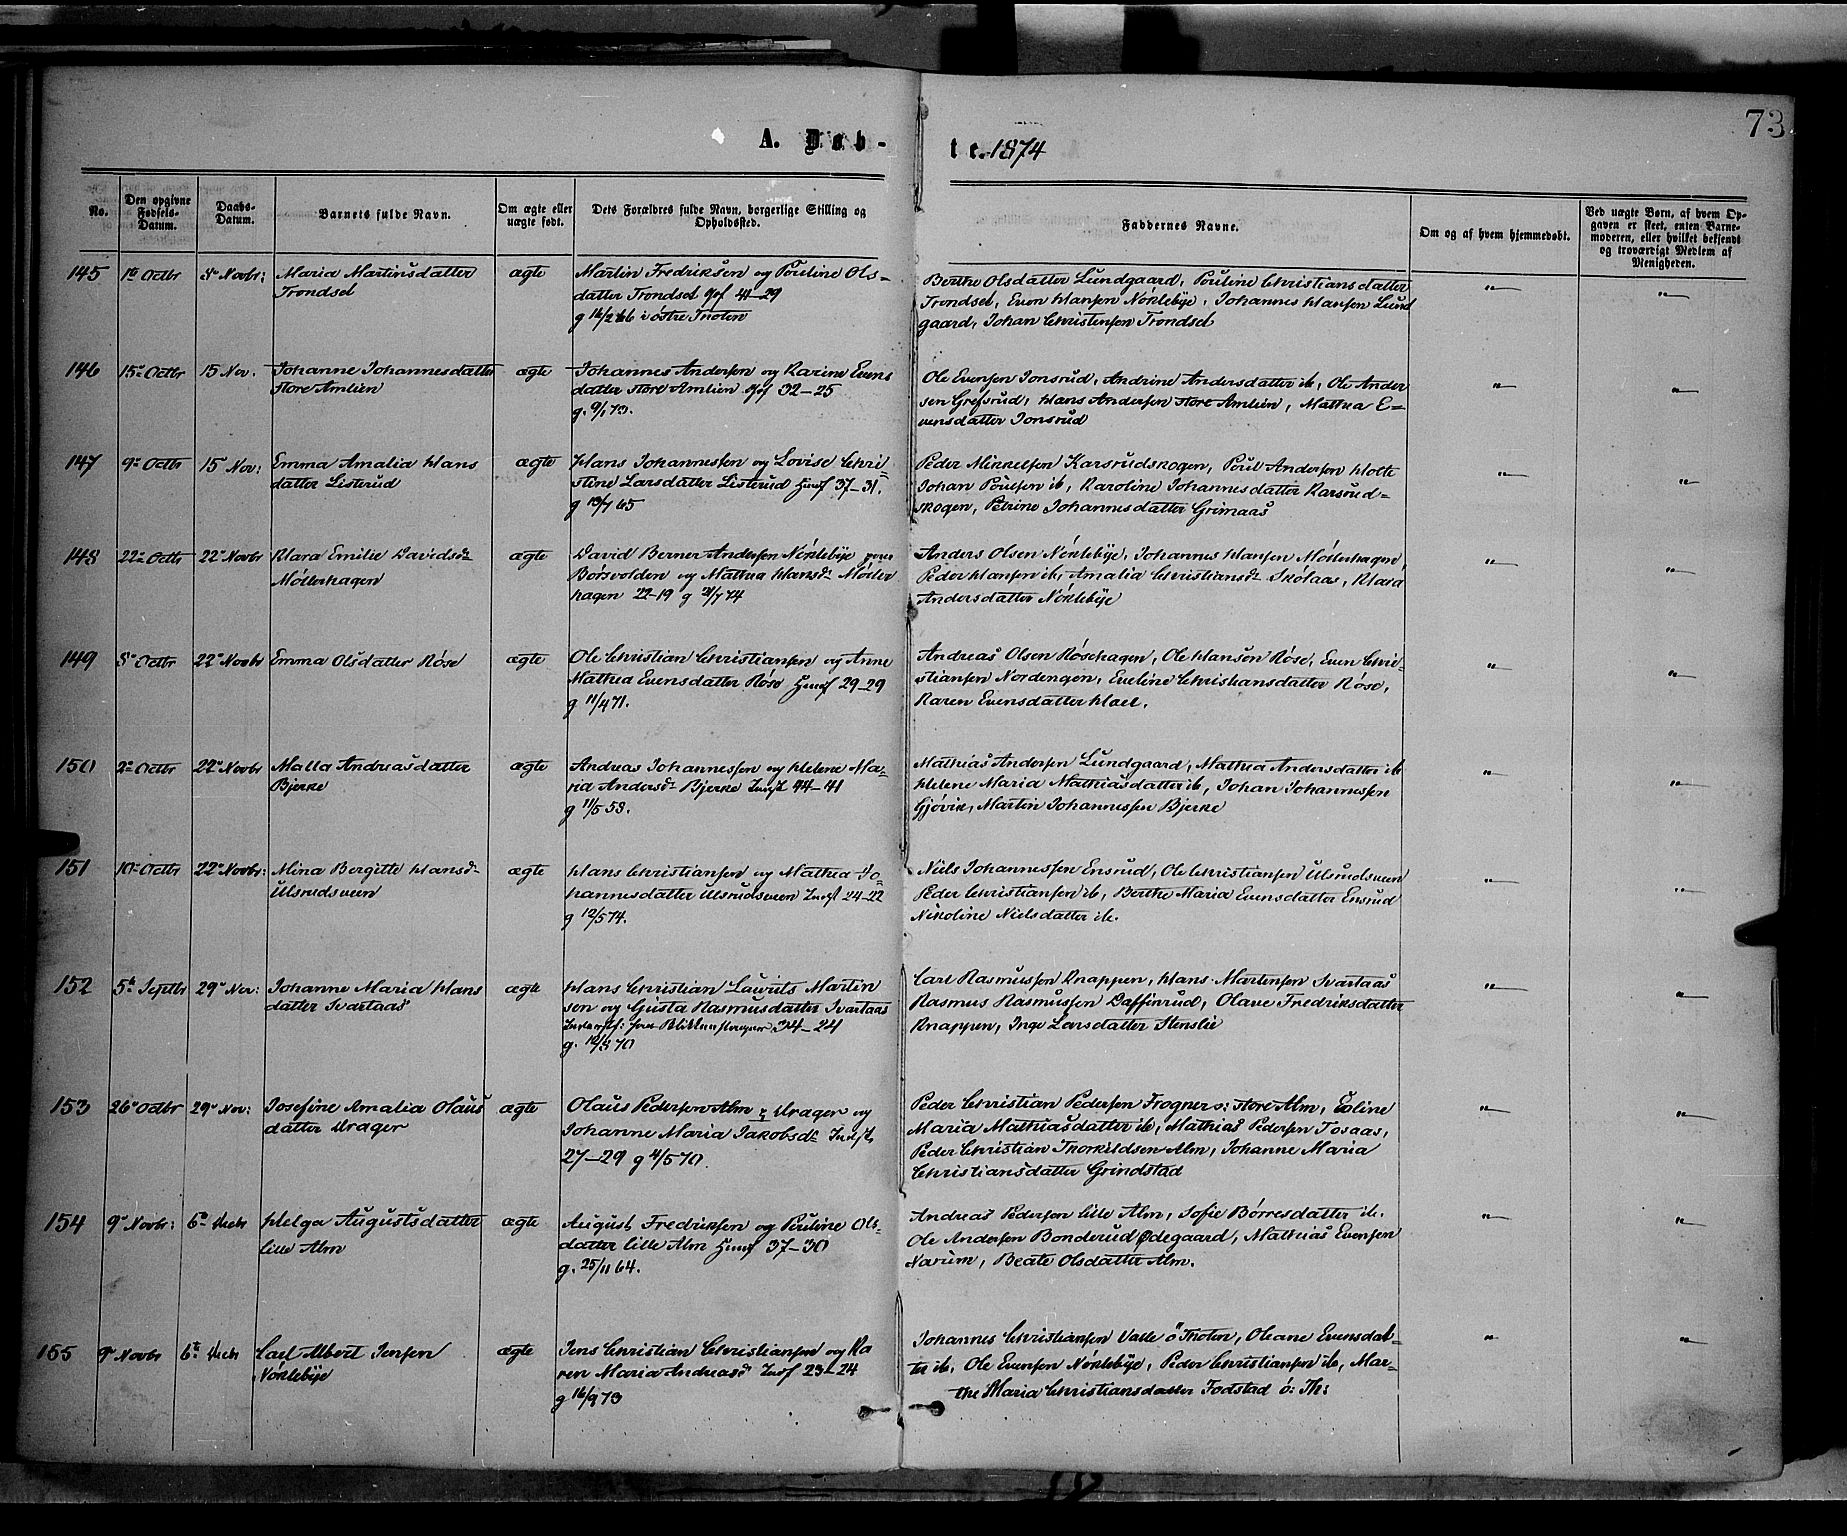 73
A. Døb-
te. 1874
No.
Den opgivne Fødsels-Datum.
Daabs-Datum.
Barnets fulde Navn.
Om ægte eller uægte født.
Dets Forældres fulde Navn, borgerlige Stilling og Opholdssted.
Faddernes Navne.
Om og af hvem hjemmedøbt.
Ved uægte Børn, af hvem Opgaven er skeet, enten Barnemoderen, eller hvilket bekjendt og troværdigt Medlem af Menigheden.
145 1te Octbr 8de Novbr: Maria Martinsdatter
Trondset
ægte
Martin Fredriksen og Pouline Ols=
datter Trondset Gbf 41–29
g 16/2 66 i østre Thoten
Berthe Olsdatter Lundgaard, Pouline Christiansdatter
Trondset, Even Hansen Nøklebye, Johannes Hansen Lund
gaard, Johan Christensen Trondset
146 15de Octbr 15 Nov. Johanne Johannesdatter
store Amlien
ægte
Johannes Andersen og Karine Evens
datter store Amlien Gbf 32–25
g. 9/1 73.
Ole Evensen Jonsrud, Andrine Andersdatter ib, Ole Ander
sen Grefsrud, Hans Andersen store Amlien, Mathea E=
vensdatter Jonsrud
147 9de Octbr 15 Nov: Emma Amalia Hans
datter Listerud
ægte
Hans Johannessen og Lovise Chri=
stine Larsdatter Listerud Husf 37–31.
g 13/7 65
Peder Mikkelsen Karsrudskogen, Poul Andersen Holte
Johan Poulsen ib, Karoline Johannesdatter Karsrud=
skogen, Petrine Johannesdatter Grimaas
148 22de Octbr 22de Novbr Klara Emilie Davidsdr
Møllerhagen
ægte
David Berner Andersen Nøklebye
Børsvolden og Mathea Hansdr Møller
hagen 22–19 g 21/7 74
Anders Olsen Nøklebye, Johannes Hansen Møllerhagen,
Peder Hansen ib, Amalia Christiansdr Skólaas, Klara
Andersdatter Nøklebye
149 8de Octbr 22de Novbr Emma Olsdatter Røse
ægte
Ole Christian Christiansen og Anne
Mathea Evensdatter Røse Husf 29–29
g 11/4 71.
Andreas Olsen Røsehagen, Ole Hansen Røse, Even Chri=
stiansen Nordengen, Eveline Christiansdatter Røse,
Karen Evensdatter Hoel.
150 2de Octbr 22de Novbr Malla Andreasdatter
Bjerke
ægte
Andreas Johannessen og Helene Ma=
ria Andersdr Bjerke Indst 44–41
g 11/5 53.
Mathias Andersen Lundgaard, Mathea Andersdatter ib
Helene Maria Mathiasdatter ib, Johan Johannessen
Gjøvik, Martin Johannessen Bjerke
151 10de Octbr 22de Novbr: Mina Bergitte Hansdr
Ulsrudsveen
ægte
Hans Christiansen og Mathea Jo=
hannesdatter Ulsrudsveen Indst 24–22
g 12/5 74.
Niels Johannessen Ensrud, Ole Christiansen Ulsrudsveen
Peder Christiansen ib, Berthe Maria Evensdatter Ensrud
Nikoline Nielsdatter ib.
152 5te Septbr 29de Nov: Johanne Maria Hans
datter Svartaas
ægte
Hans Christian Laurits Martin
sen og Gusta Rasmusdatter Svartaas
Inderst: 34–24
g. 12/8 70
Carl Rasmussen Knappen, Hans Martinsen Svartaas
Rasmus Rasmussen Daffinrud, Olave Fredriksdatter
Knappen, Inge Larsdatter Stenslie
153 26de Octbr 29de Nov: Josefine Amalia Olaus
datter Krager
ægte
Olaus Pedersen Alm Krager og
Johanne Maria Jakobsdr Indst
27–29 g 4/5 70.
Peder Christian Pedersen Frogner o: store Alm, Eoline
Maria Mathiasdatter ib, Mathias Pedersen Tosaas,
Peder Christian Thorkildsen Alm, Johanne Maria
Christiansdatter Grindstad
154 9de Novbr: 6te Decbr Helga Augustsdatter
lille Alm
ægte
August Fredriksen og Pauline Ols=
datter lille Alm Husf 37–30
g. 25/11 64.
Andreas Pedersen lille Alm, Sofie Børresdatter ib.
Ole Andersen Bonderud Ødegaard, Mathias Evensen
Narum, Beate Olsdatter Alm.
155 9de Novbr 6te Decbr Carl Albert Jensen
Nøklebye
ægte
Jens Christian Christiansen og Ka
ren Maria Andreasd Indf 23–24
g 16/9 73
Johannes Christiansen Valle ø Thoten, Oleane Evensdat=
ter ib, Ole Evensen Nøklebye, Peder Christiansen ib, Mar=
the Maria Christiansdatter Fodstad ø: Th: